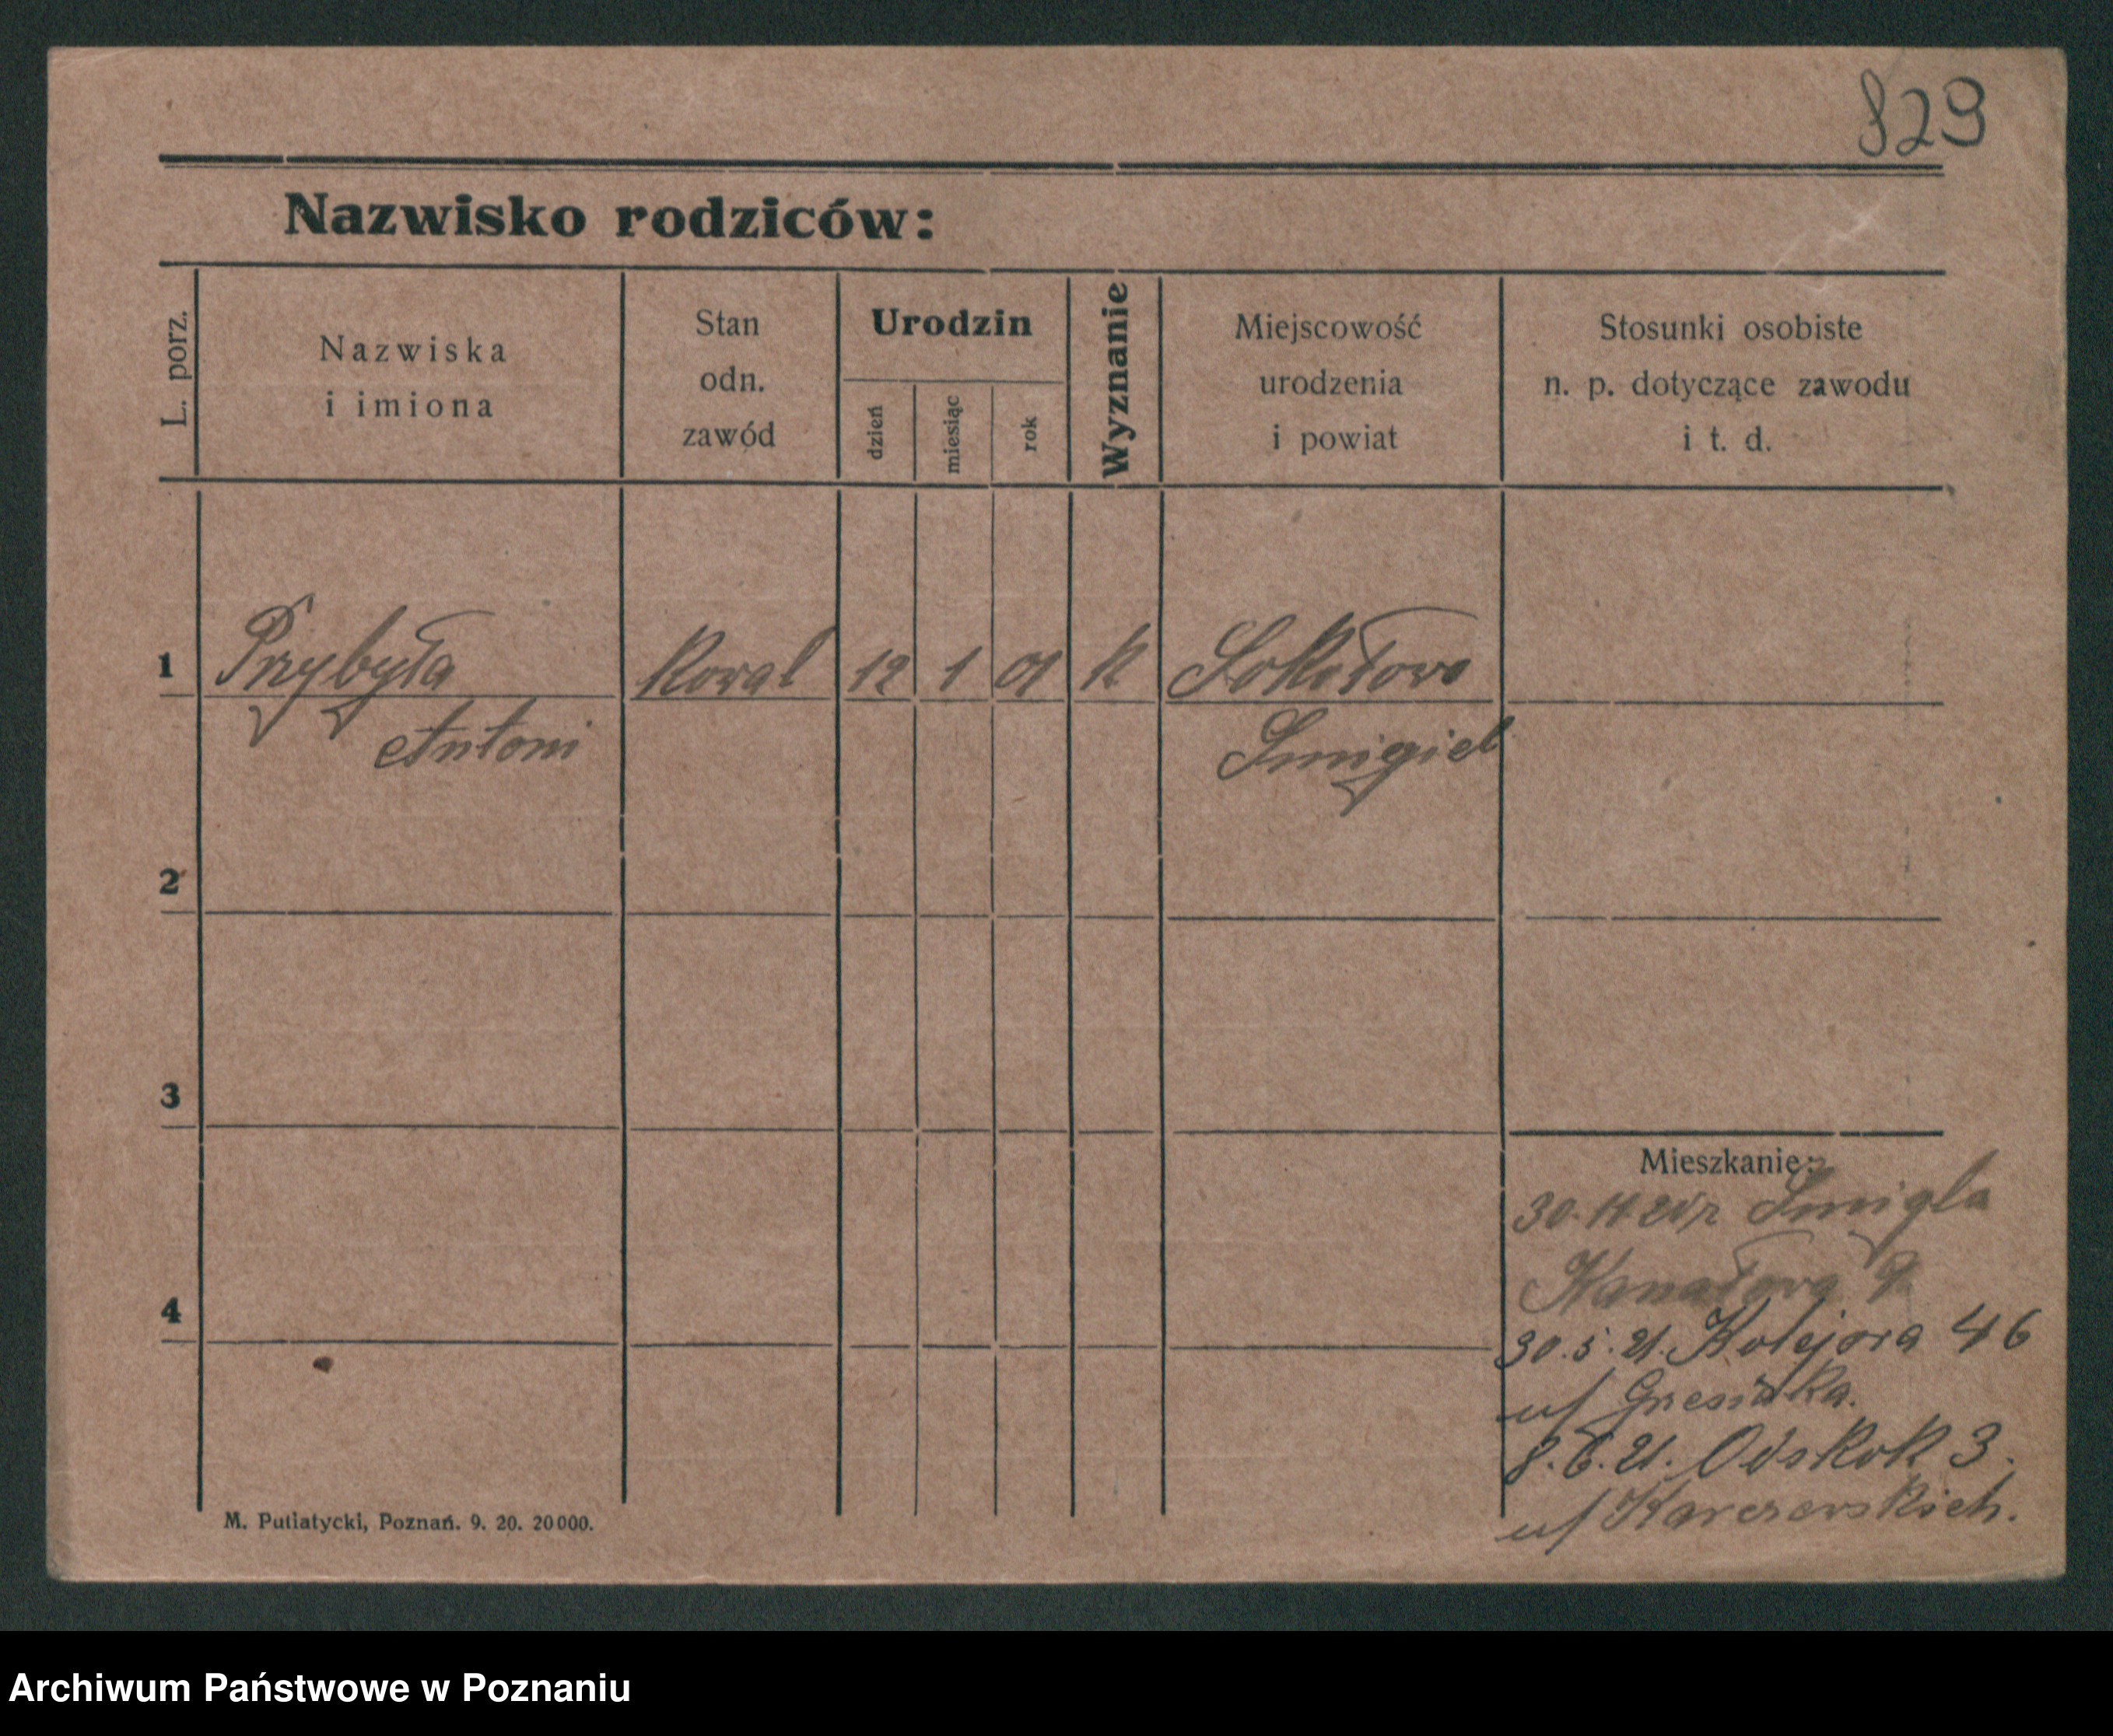 829
Nazwisko rodziców:
L. porz.
Nazwiska
i imiona
Stan
odn.
zawód
Urodzin
dzień
miesiąc
rok
Wyznanie
Miejscowość
urodzenia
i powiat
Stosunki osobiste
n. p. dotyczące zawodu
i t. d.
1 Przybyła Kowal 12 1 01 k Sokołowo
Antoni Smigiel
2
3
4
Mieszkanie:
Smigla
Kanałowa
30.5.21. Kolejowa 46
u/
8.6.21. Odskok 3.
u/ Karczewskich.
M. Putiatycki, Poznań. 9. 20. 20000.
Archiwum Państwowe w Poznaniu